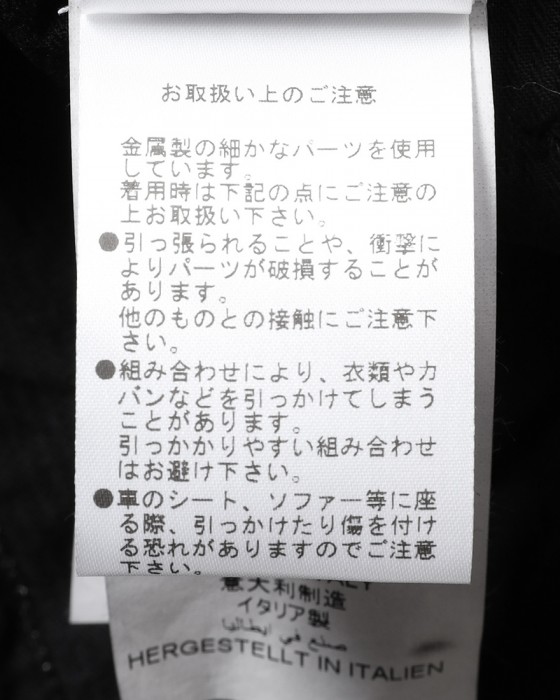 お取扱い上のご注意
金属製の細かなパーツを使用
しています。
着用時は下記の点にご注意の
上お取扱い下さい。
●引っ張られることや、衝撃に
よりパーツが破損することが
あります。
他のものとの接触にご注意下
さい。
●組み合わせにより、衣類やカ
バンなどを引っかけてしまう
ことがあります。
引っかかりやすい組み合わせ
はお避け下さい。
●車のシート、ソファー等に座
る際、引っかけたり傷を付け
る恐れがありますのでご注意
下さい。
意大利制造
イタリア製
صنع في ايطاليا
HERGESTELLT IN ITALIEN